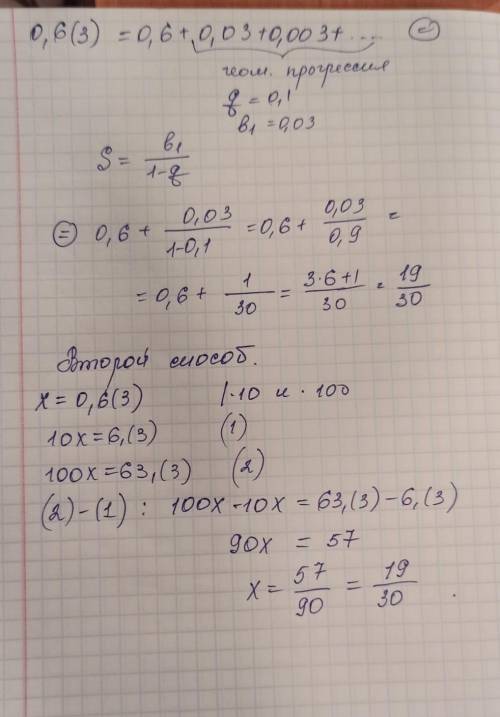 0,6(3) = 0,6 + 0,03 + 0,003 + .... ⊜
геом. прогрессия
q = 0,1
b₁ = 0,03
S = b₁/(1-q)
⊜ 0,6 + 0,03/(1-0,1) = 0,6 + 0,03/0,9 =
= 0,6 + 1/30 = (3·6+1)/30 = 19/30
Второй способ.
x = 0,6(3) |·10 и ·100
10x = 6,(3) (1)
100x = 63,(3) (2)
(2)-(1) : 100x - 10x = 63,(3) - 6,(3)
90x = 57
x = 57/90 = 19/30 .